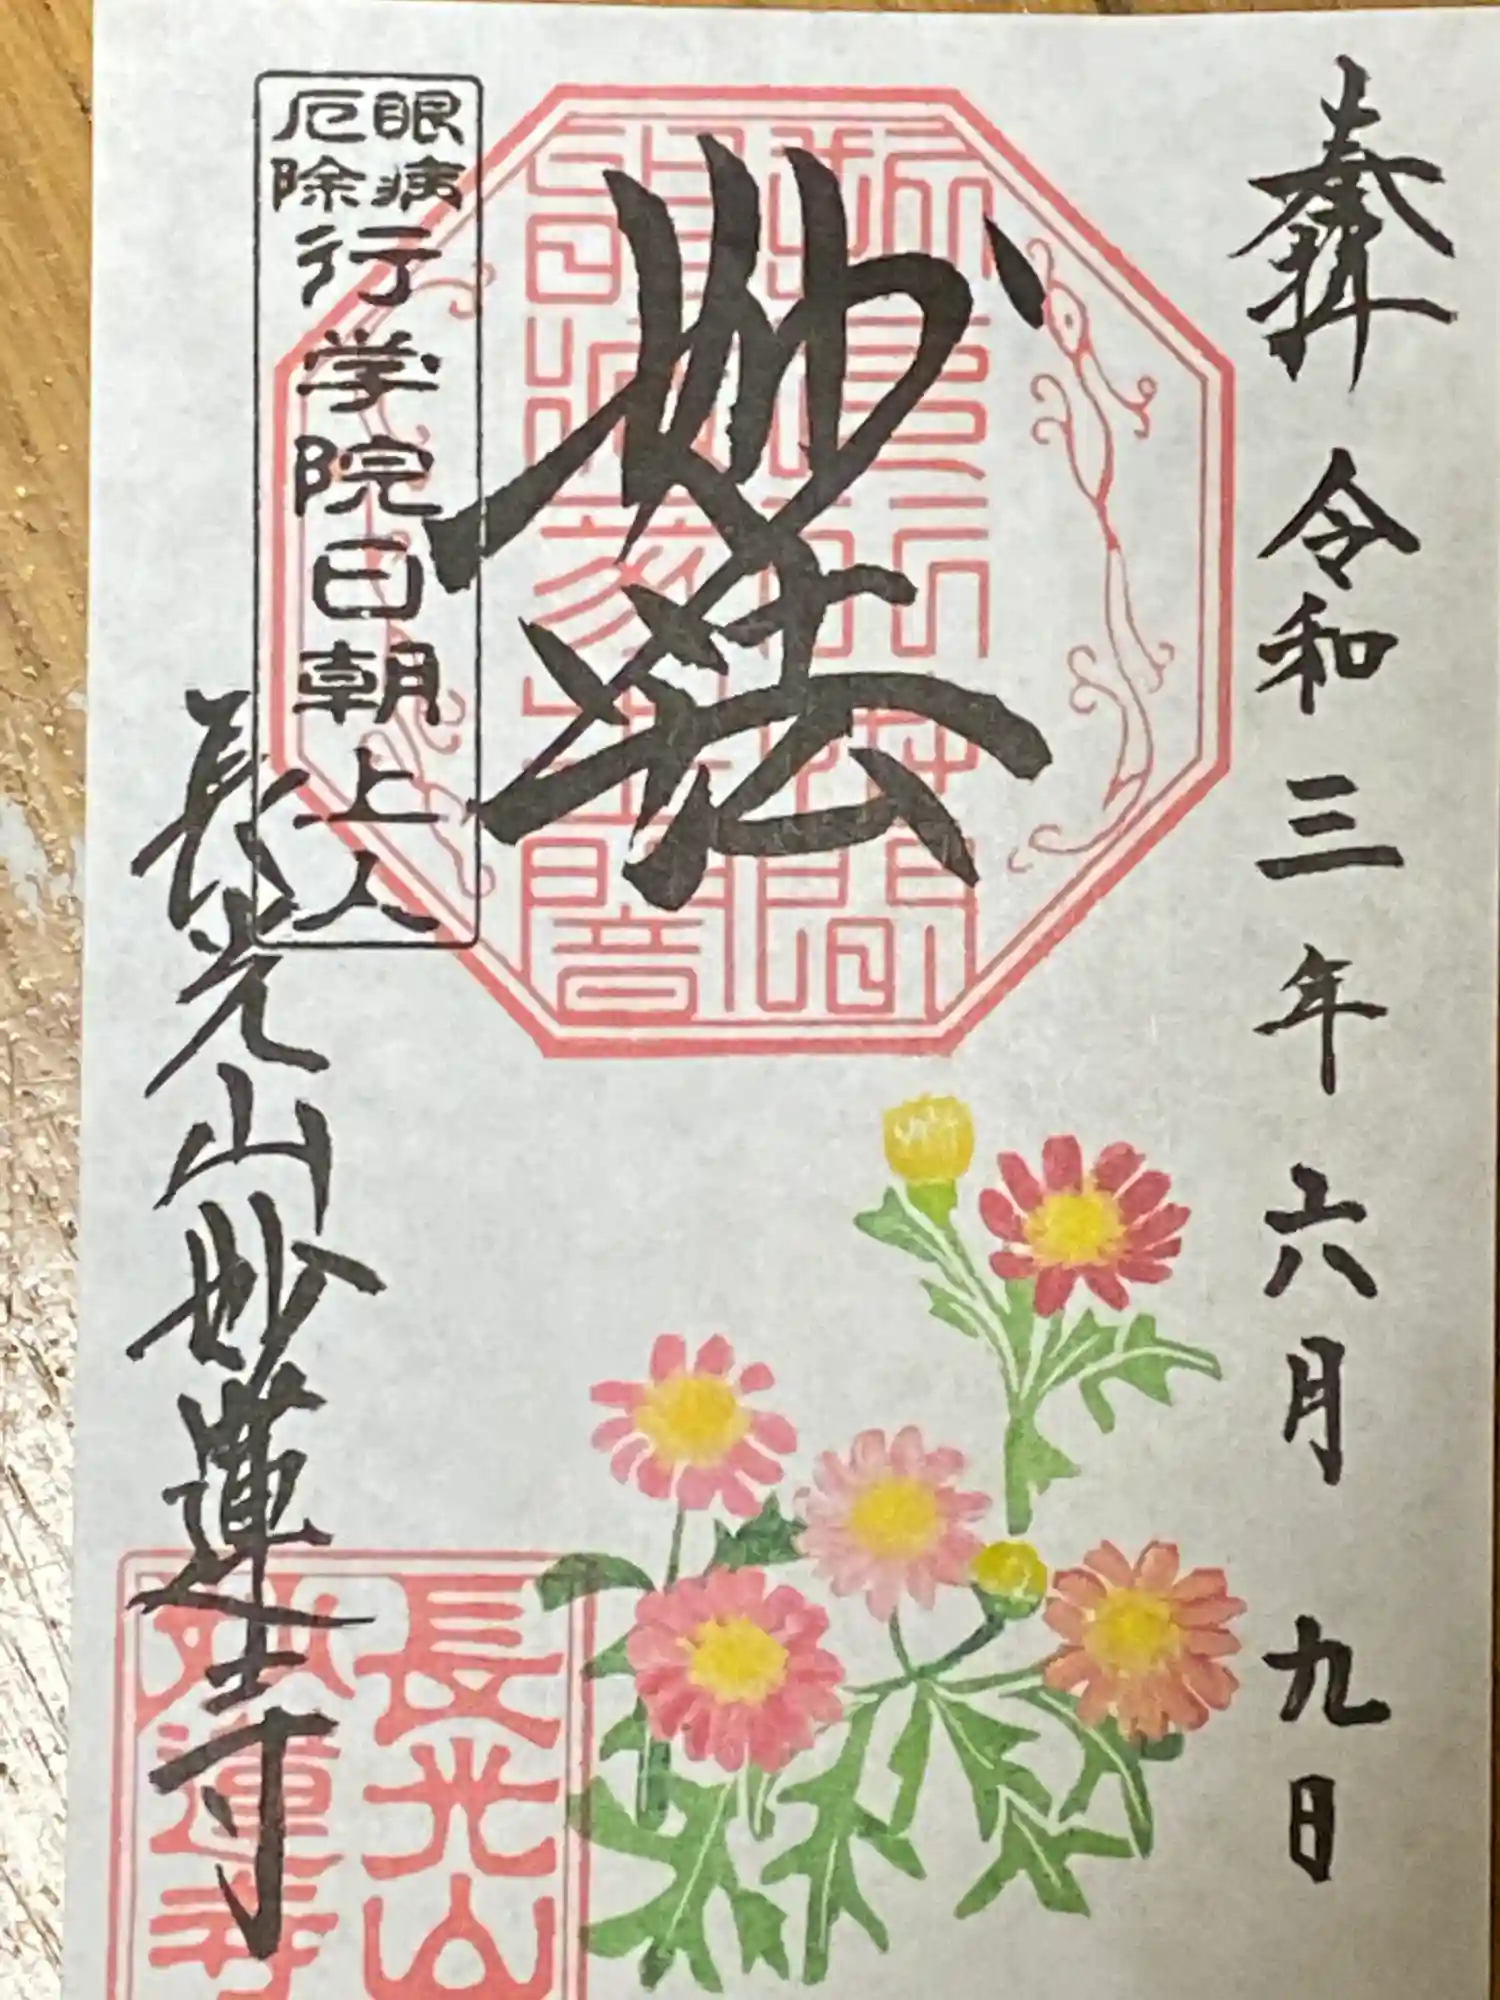 奉拝
令和三年六月九日
妙法
眼病
厄除
行学院日朝上人
長光山妙蓮寺
長光山
妙蓮寺